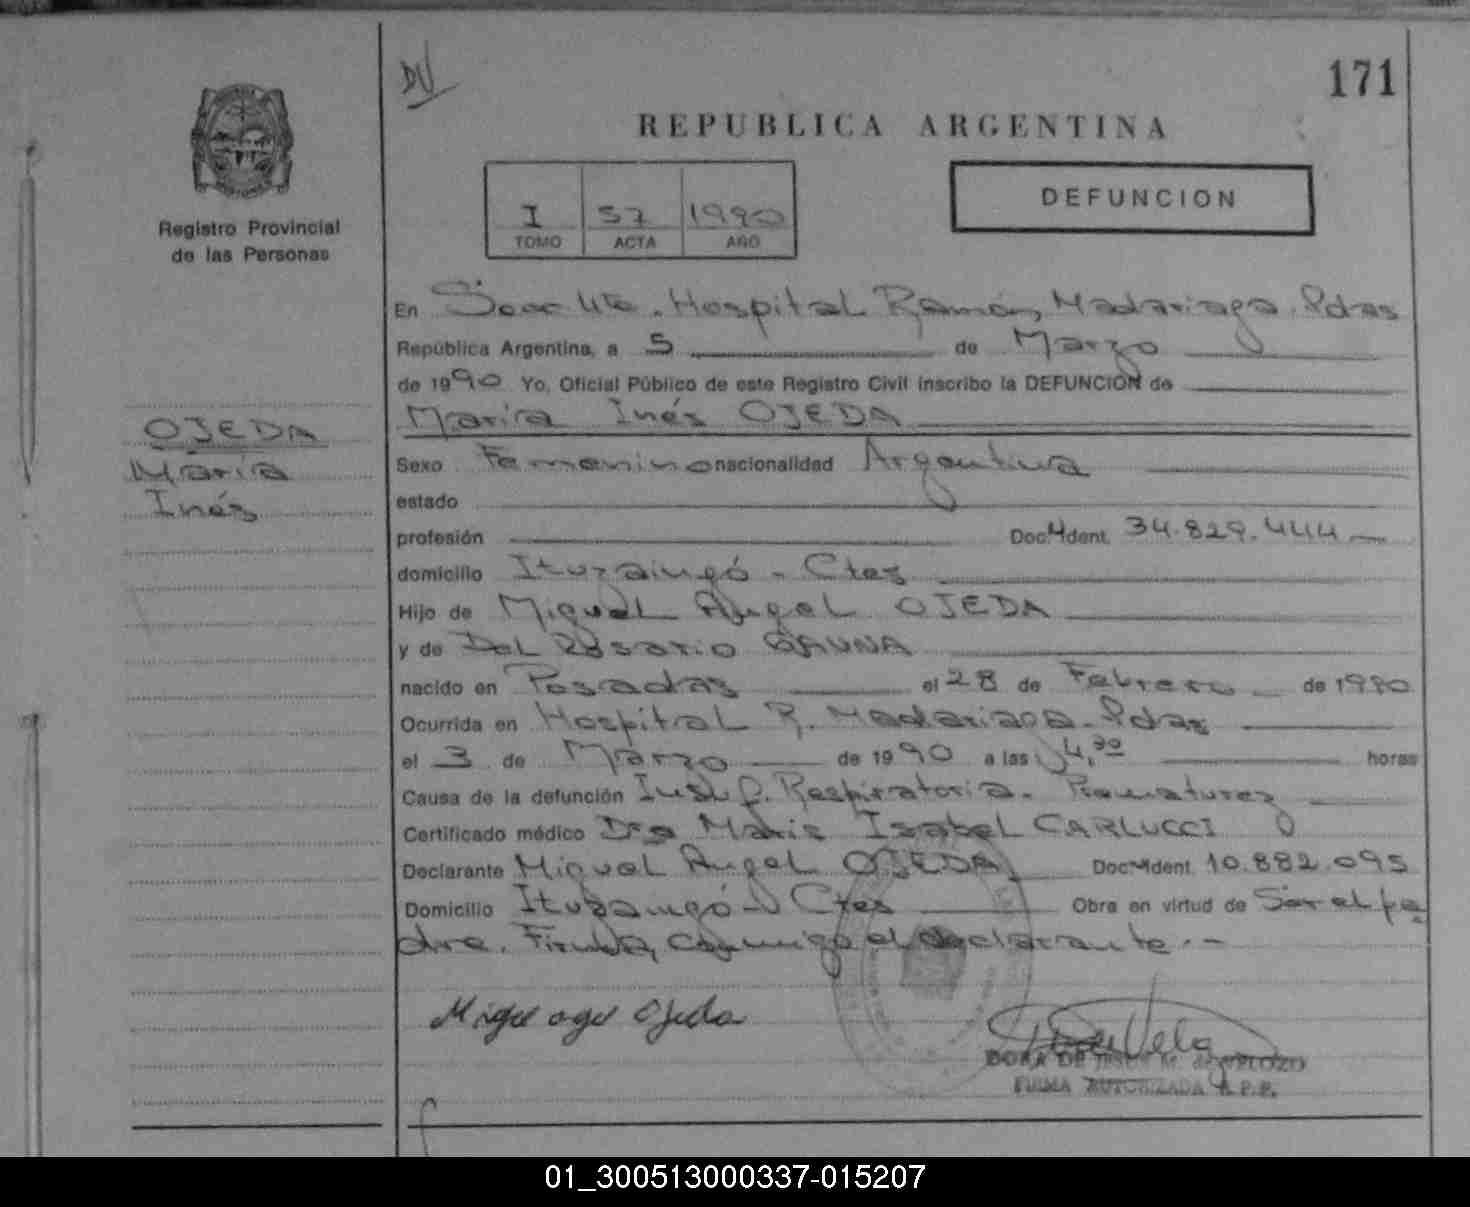 DV
171
REPUBLICA ARGENTINA
I 57 1990
TOMO ACTA AÑO
DEFUNCION
Registro Provincial
de las Personas
OJEDA
María
Inés
En Secc 4ta. Hospital Ramón Madariaga. Pdas
República Argentina, a 5 de Marzo
de 1990 Yo, Oficial Público de este Registro Civil inscribo la DEFUNCION de
María Inés OJEDA
Sexo Femenino nacionalidad Argentina
estado
profesión Doc. Ident. 34.829.444
domicilio Ituzaingó - Ctes
Hijo de Miguel Angel OJEDA
y de Del Rosario GAUNA
nacido en Posadas el 28 de Febrero de 1990
Ocurrida en Hospital R. Madariaga. Pdas
el 3 de Marzo de 1990 a las 4,30 horas
Causa de la defunción Insuf. Respiratoria. Prematurez
Certificado médico Dra María Isabel CARLUCCI
Declarante Miguel Angel OJEDA Doc. Ident. 10.882.095
Domicilio Ituzaingó - Ctes Obra en virtud de Ser el pa
dre. Firma conmigo el declarante.-
Ojeda
DORA DE JESUS M. de VELOZO
FIRMA AUTORIZADA R.P.P.
01_300513000337-015207